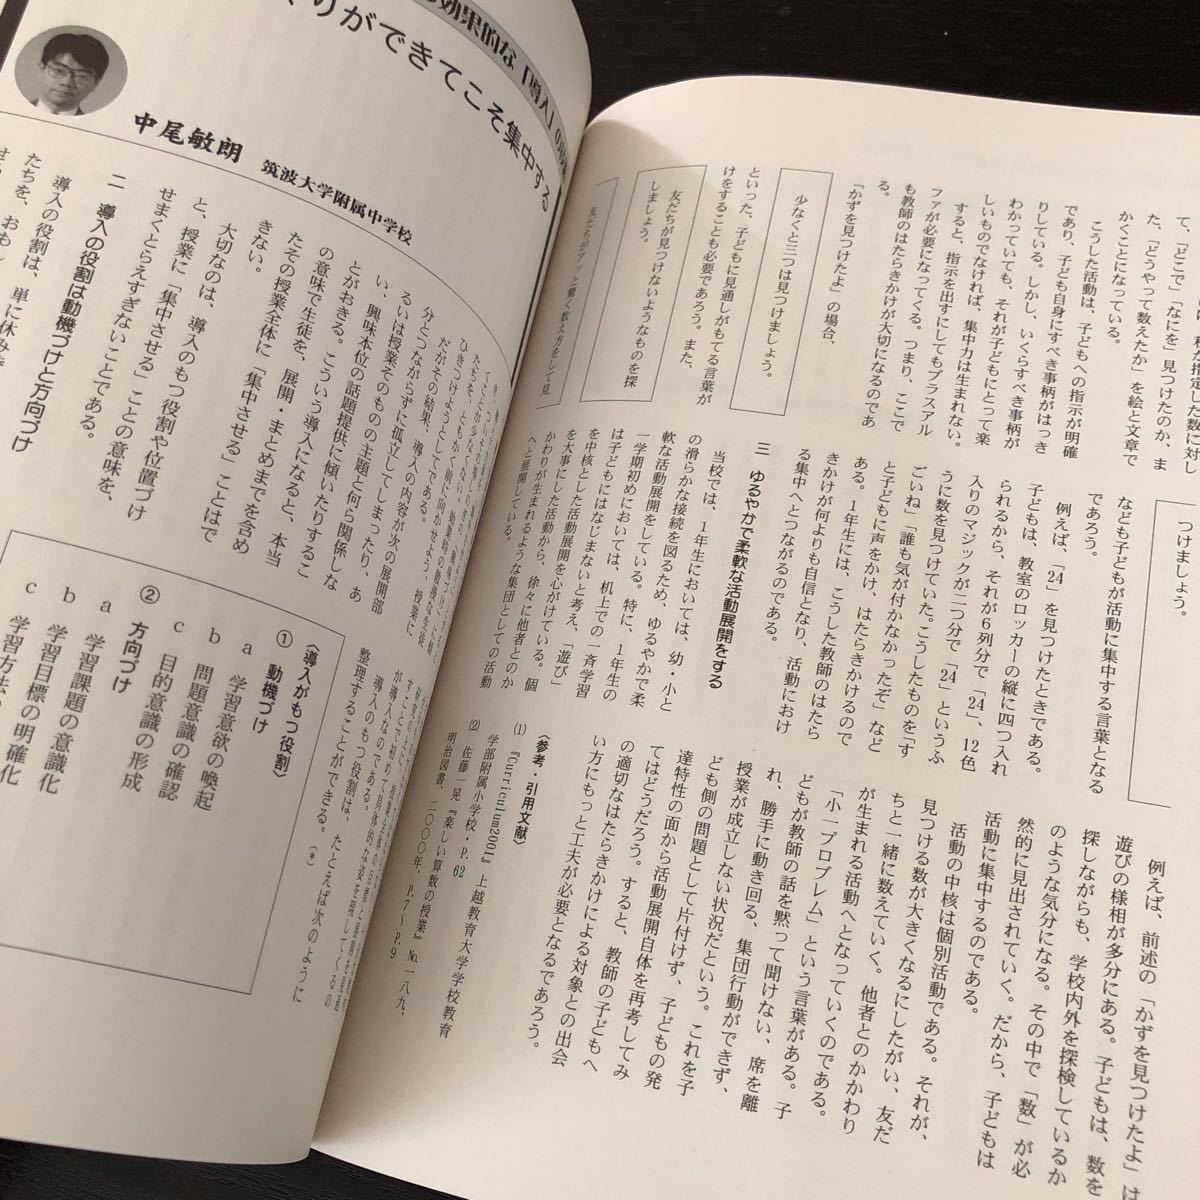 て、「どこで」「なにを」見つけたのか、ま
た、「どうやって数えたか」を絵と文章で
かくことになっている。
こうした活動は、子どもへの指示が明確
であり、子ども自身にすべき事柄がはっき
りしている。しかし、いくらすべき事柄が
わかっていても、それが子どもにとって楽
しいものでなければ、集中力は生まれない。
すると、指示を出すにしてもプラスアル
ファが必要になってくる。つまり、ここで
も教師のはたらきかけが大切になるのであ
る。
「かずを見つけたよ」の場合、
少なくと三つは見つけましょう。
といった、子どもに見通しがもてる言葉が
けをすることも必要であろう。また、
友だちが見つけないようなものを探
しましょう。
友だちがアッと驚く数え方をして見
つけましょう。
なども子どもが活動に集中する言葉となる
であろう。
例えば、「24」を見つけたときである。
子どもは、教室のロッカーの縦に四つ入れ
られるから、それが6列分で「24」、12色
入りのマジックが二つ分で「24」というふ
うに数を見つけていた。こうしたものを「す
ごいね」「誰も気が付かなかったぞ」など
と子どもに声をかけ、はたらきかけるので
ある。1年生には、こうした教師のはたら
きかけが何よりも自信となり、活動におけ
る集中へとつながるのである。
三 ゆるやかで柔軟な活動展開をする
当校では、1年生においては、幼・小と
の滑らかな接続を図るため、ゆるやかで柔
軟な活動展開をしている。特に、1年生の
一学期初めにおいては、机上での一斉学習
は子どもにはなじまないと考え、「遊び」
を中核とした活動展開を心がけている。個
を大事にした活動から、徐々に他者とのか
かわりが生まれるような集団としての活動
へと展開している。
例えば、前述の「かずを見つけたよ」は
遊びの様相が多分にある。子どもは、数を
探しながらも、学校内外を探検しているか
のような気分になる。その中で「数」が必
然的に見出されていく。だから、子どもは
活動に集中するのである。
活動の中核は個別活動である。それが、
見つける数が大きくなるにしたがい、友だ
ちと一緒に数えていく。他者とのかかわり
が生まれる活動へとなっていくのである。
「小一プロブレム」という言葉がある。子
どもが教師の話を黙って聞けない、席を離
れ、勝手に動き回る、集団行動ができず、
授業が成立しない状況だという。これを子
ども側の問題として片付けず、子どもの発
達特性の面から活動展開自体を再考してみ
てはどうだろう。すると、教師の子どもへ
の適切なはたらきかけによる対象との出会
い方にもっと工夫が必要となるであろう。
〈参考・引用文献〉
(1) 『Curriculum2001』上越教育大学学校教育
学部附属小学校・P.62
(2) 佐藤一晃『楽しい算数の授業』No.一八九、
明治図書、二〇〇〇年、P.7〜P.9
効果的な「導入」の
くりができてこそ集中する
中尾敏朗
筑波大学附属中学校
ひきつけようとしてである。
だがその結果、導入の内容が次の展開部
分とつながらずに孤立してしまったり、あ
るいは授業そのものの主題と何ら関係しな
い、興味本位の話題提供に傾いたりするこ
とがおきる。こういう導入になると、本当
の意味で生徒を、展開・まとめまでを含め
たその授業全体に「集中させる」ことはで
きない。
大切なのは、導入のもつ役割や位置づけ
と、授業に「集中させる」ことの意味を、
せまくとらえすぎないことである。
二 導入の役割は動機づけと方向づけ
導入の役割は、単に休み
たちを、おも
が導入なのである。
導入のもつ役割は、たとえば次のように
整理することができる。(*)
〈導入がもつ役割〉
① 動機づけ
a 学習意欲の喚起
b 問題意識の確認
c 目的意識の形成
② 方向づけ
a 学習課題の意識化
b 学習目標の明確化
c 学習方法